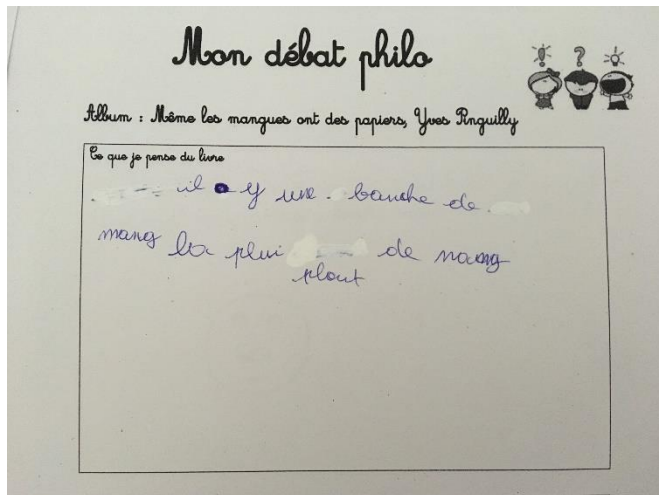 Mon débat philo
Album : Même les mangues ont des papiers, Yves Pinguilly
Ce que je pense du livre
il a y une banche de
mang la plui de naong
plout